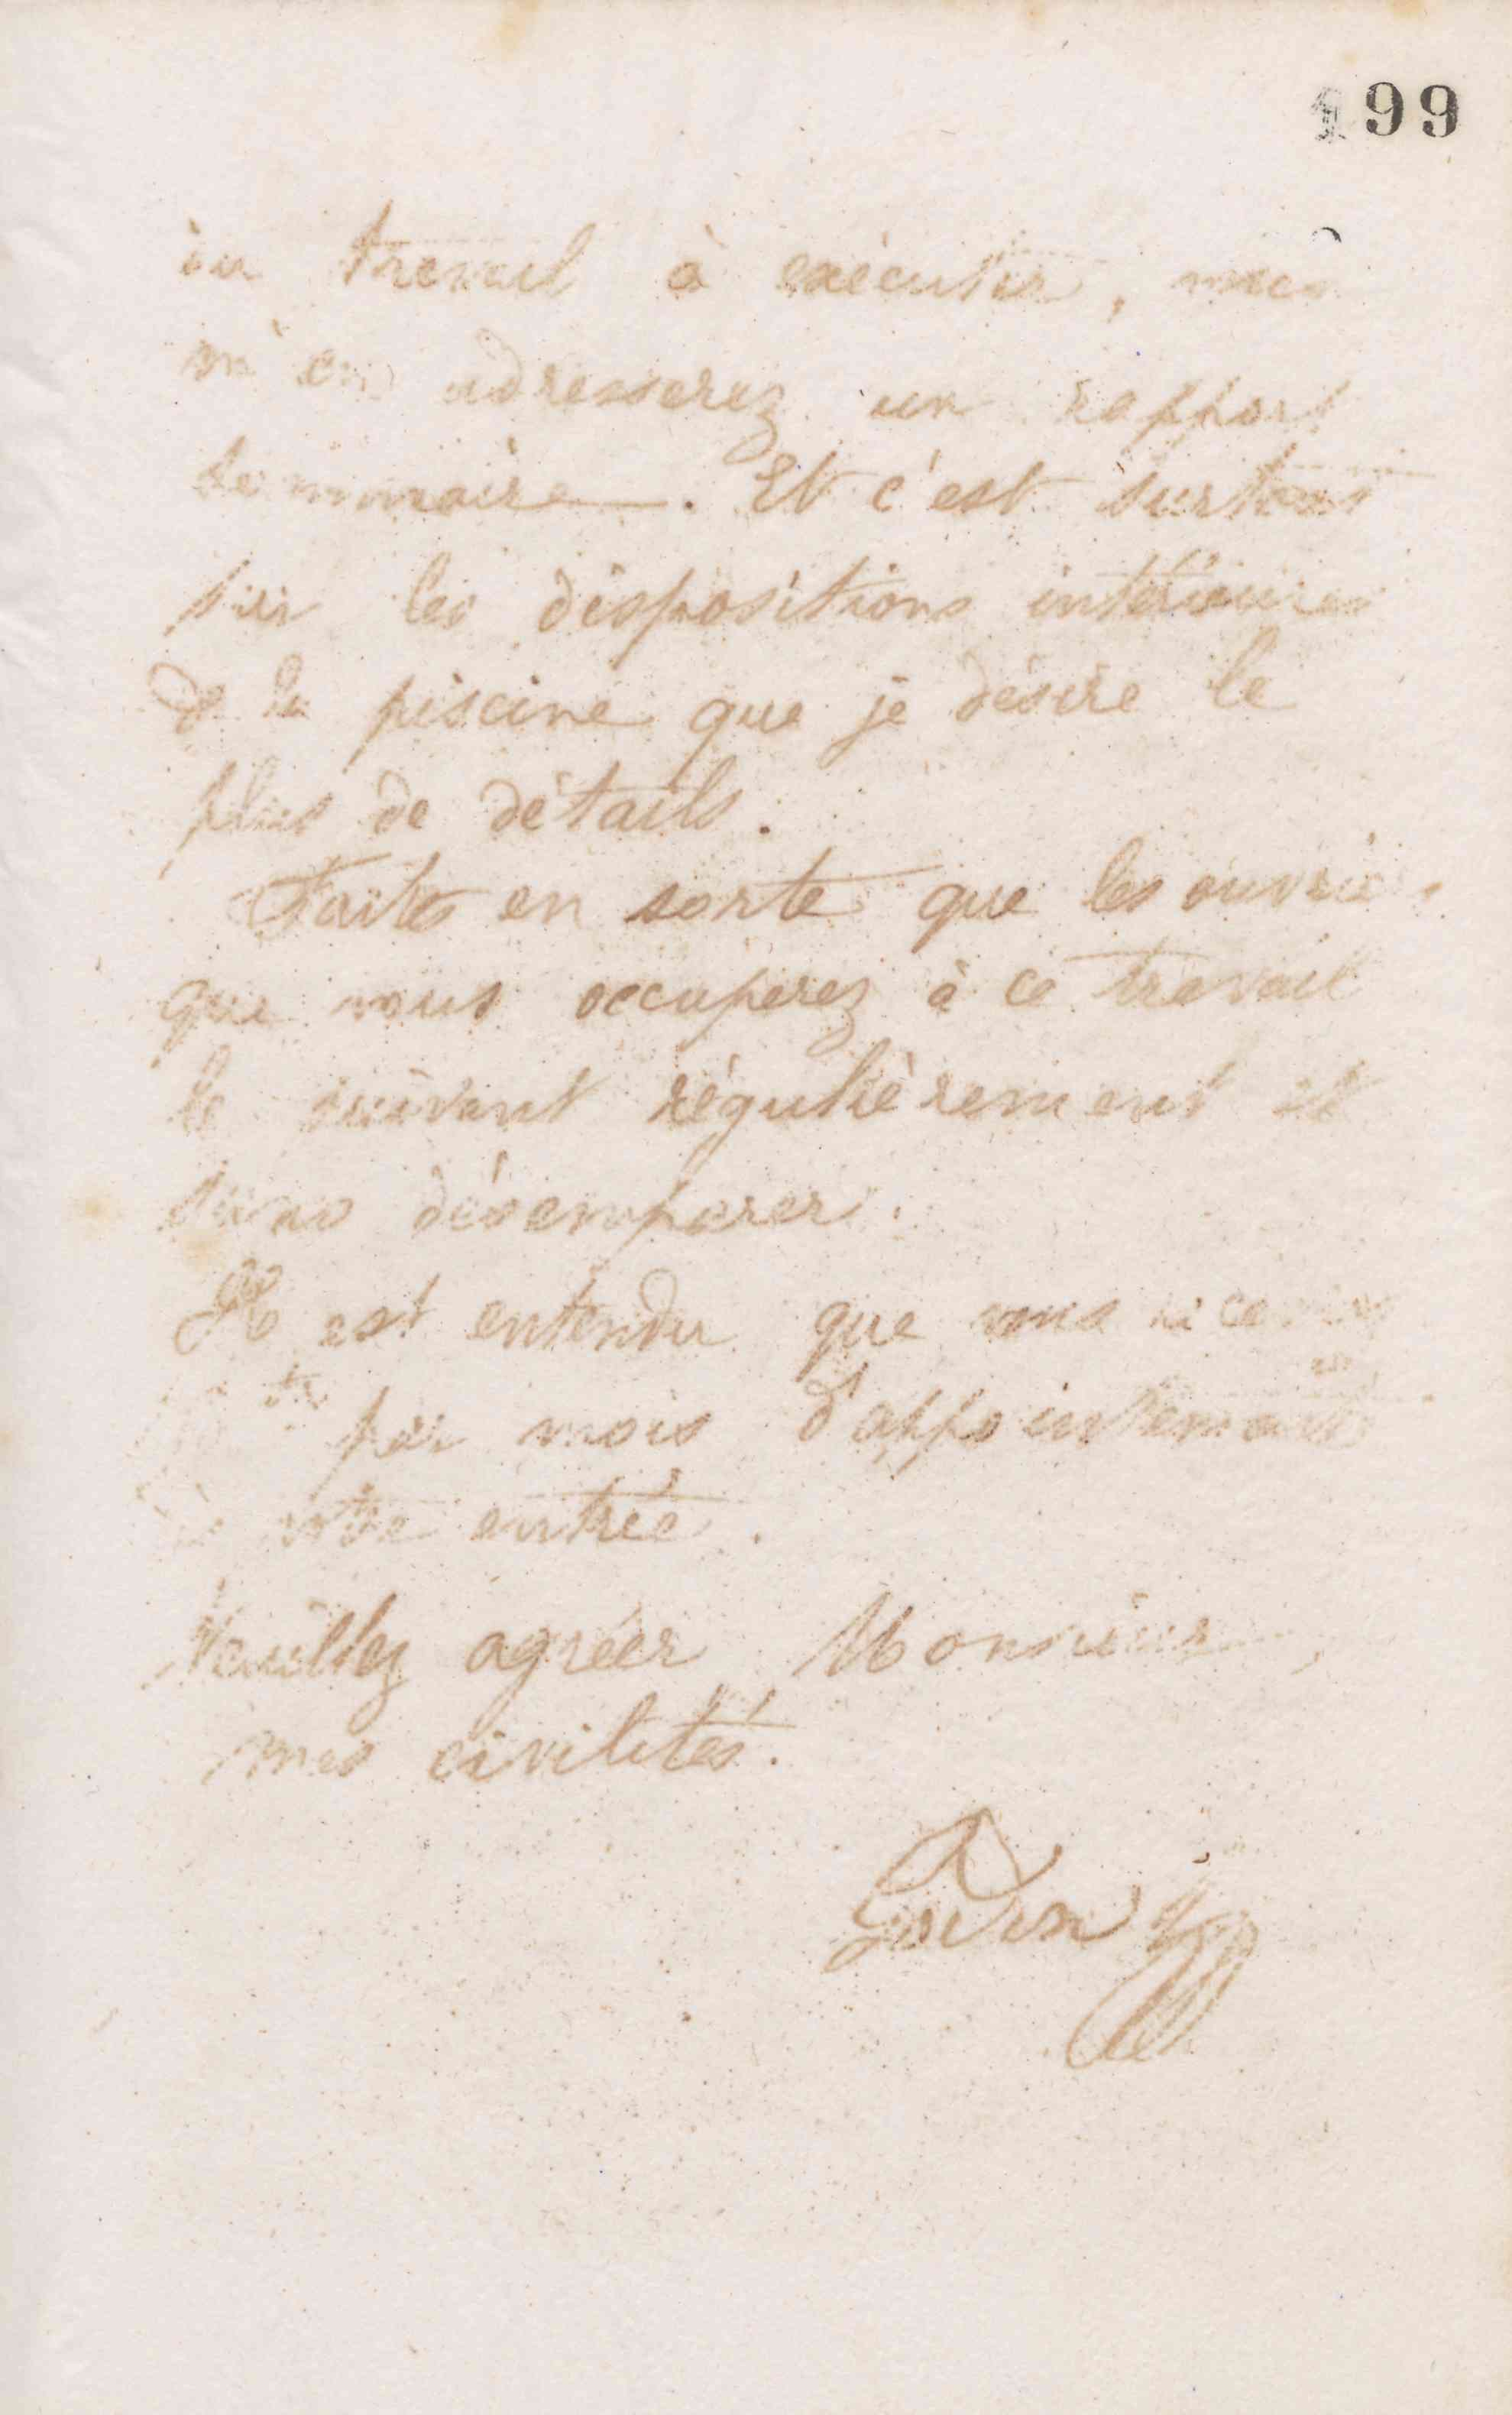 199
du travail à exécuter, vous
m'en adresserez un rapport
sommaire. Et c'est surtout
sur les dispositions intérieures
de la piscine que je désire le
plus de détails.
Faites en sorte que les ouvriers
que vous occuperez à ce travail
le suivent régulièrement et
sans désemparer.
Il est entendu que vous recevrez
par mois d'appointements
votre entrée.
Veuillez agréer, Monsieur,
mes civilités.
Godin